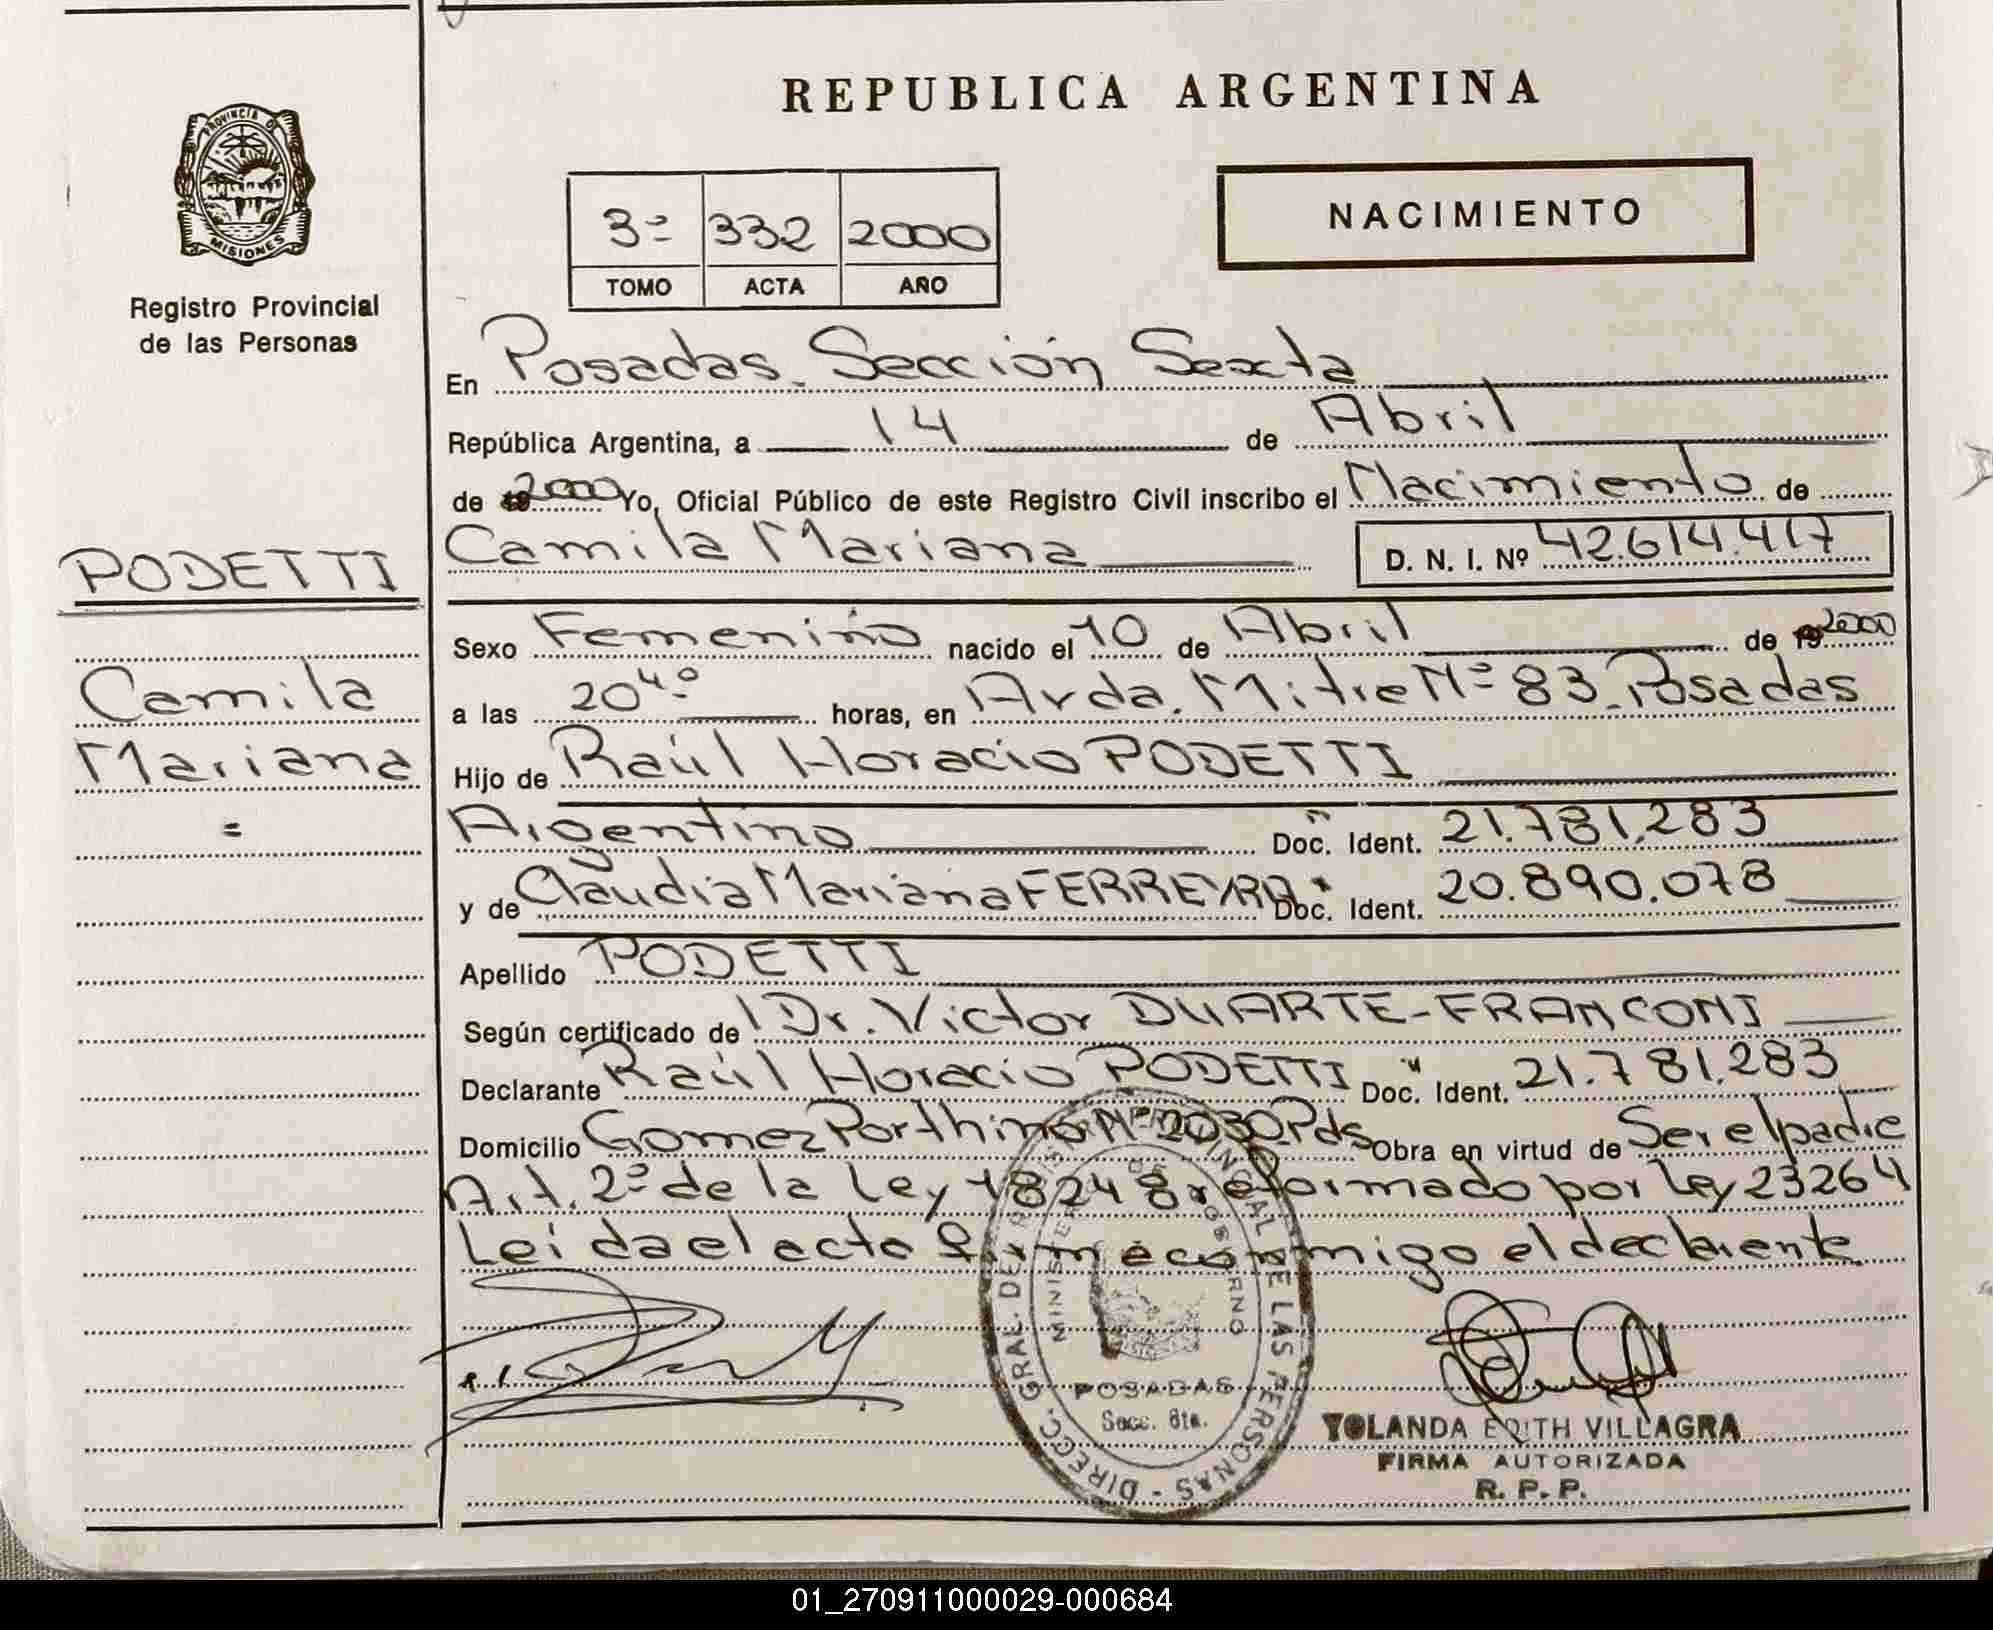 REPUBLICA ARGENTINA
PROVINCIA DE
MISIONES
Registro Provincial
de las Personas
3º 332 2000
TOMO ACTA AÑO
NACIMIENTO
En Posadas. Sección Sexta
República Argentina, a 14 de Abril
de 2000 Yo, Oficial Público de este Registro Civil inscribo el Nacimiento de
Camila Mariana D. N. I. Nº 42.614.417
PODETTI
Camila
Mariana
=
Sexo Femenino nacido el 10 de Abril de 19 2000
a las 20 4º horas, en Avda. Mitre Nº 83 Posadas
Hijo de Raúl Horacio PODETTI
Argentino Doc. Ident. 21.781.283
y de Claudia Mariana FERREYRA Doc. Ident. 20.890.078
Apellido PODETTI
Según certificado de Dr. Victor DUARTE-FRANCONI
Declarante Raúl Horacio PODETTI Doc. Ident. 21.781.283
Domicilio Gomez Porthino Nº 2030 Pds Obra en virtud de Ser el padre
Art. 2º de la Ley 18248 reformado por Ley 23264
Leída el acto firmé conmigo el declarante
DIRECC. GRAL. DEL REGISTRO PROVINCIAL DE LAS PERSONAS -
MINISTERIO DE GOBIERNO
POSADAS
Secc. 6ta.
YOLANDA EDITH VILLAGRA
FIRMA AUTORIZADA
R. P. P.
01_270911000029-000684